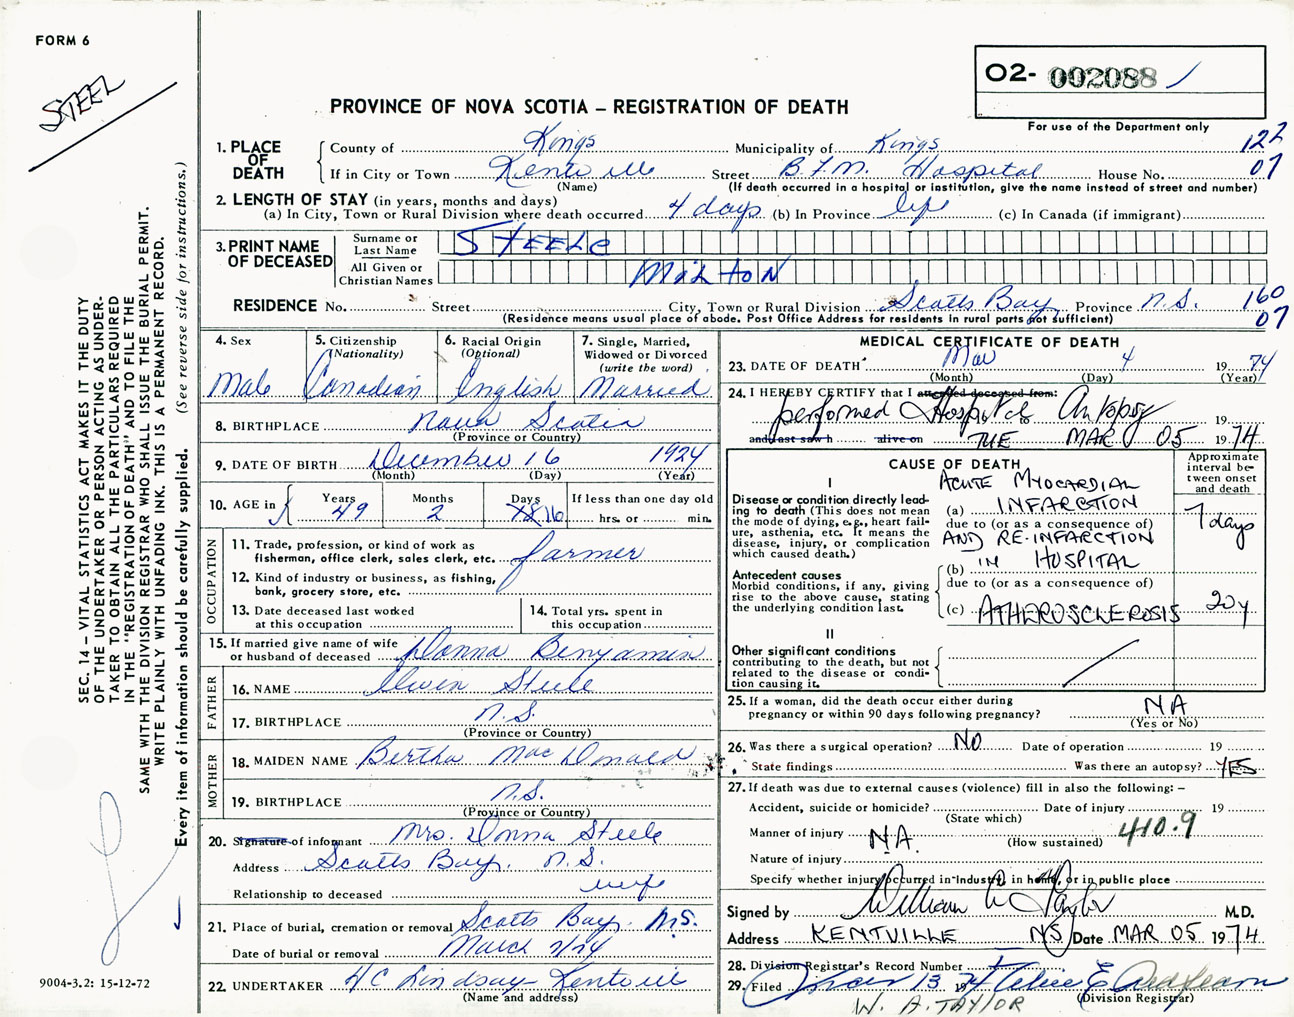 FORM 6
STEEL
02- 002088
PROVINCE OF NOVA SCOTIA – REGISTRATION OF DEATH
For use of the Department only
1. PLACE OF DEATH
County of Kings Municipality of Kings 122
If in City or Town Kentville Street B.F.M. Hospital House No. 07
(Name) (If death occurred in a hospital or institution, give the name instead of street and number)
2. LENGTH OF STAY (in years, months and days)
(a) In City, Town or Rural Division where death occurred 4 days (b) In Province life (c) In Canada (if immigrant)
3. PRINT NAME OF DECEASED
Surname or Last Name STEELE
All Given or Christian Names MILTON
RESIDENCE No. Street City, Town or Rural Division Scotts Bay Province N.S. 160
(Residence means usual place of abode. Post Office Address for residents in rural parts not sufficient) 07
4. Sex Male
5. Citizenship (Nationality) Canadian
6. Racial Origin (Optional) English
7. Single, Married, Widowed or Divorced (write the word) Married
8. BIRTHPLACE Nova Scotia
(Province or Country)
9. DATE OF BIRTH December 16 1924
(Month) (Day) (Year)
10. AGE in Years 49 Months 2 Days 16 If less than one day old hrs. or min.
OCCUPATION
11. Trade, profession, or kind of work as fisherman, office clerk, sales clerk, etc. farmer
12. Kind of industry or business, as fishing, bank, grocery store, etc.
13. Date deceased last worked at this occupation
14. Total yrs. spent in this occupation
15. If married give name of wife or husband of deceased Donna Benjamin
FATHER
16. NAME Steele
17. BIRTHPLACE N.S.
(Province or Country)
MOTHER
18. MAIDEN NAME Bertha MacDonald
19. BIRTHPLACE N.S.
(Province or Country)
20. Signature of informant Mrs. Donna Steele
Address Scotts Bay. N.S.
Relationship to deceased wife
21. Place of burial, cremation or removal Scotts Bay. N.S.
Date of burial or removal March 7/74
22. UNDERTAKER H/C Lindsay - Kentville
(Name and address)
MEDICAL CERTIFICATE OF DEATH
23. DATE OF DEATH Mar 4 1974
(Month) (Day) (Year)
24. I HEREBY CERTIFY that I attended deceased from:
performed Hospital Autopsy 19
and last saw h alive on TUE MAR 05 1974
CAUSE OF DEATH
Approximate interval between onset and death
I
Disease or condition directly leading to death (This does not mean the mode of dying, e.g., heart failure, asthenia, etc. It means the disease, injury, or complication which caused death.)
ACUTE MYOCARDIAL
(a) INFARCTION
due to (or as a consequence of) 7 days
AND RE-INFARCTION
(b) IN HOSPITAL
Antecedent causes
Morbid conditions, if any, giving rise to the above cause, stating the underlying condition last.
due to (or as a consequence of)
(c) ATHEROSCLEROSIS 20y
II
Other significant conditions
contributing to the death, but not related to the disease or condition causing it.
25. If a woman, did the death occur either during pregnancy or within 90 days following pregnancy? NA
(Yes or No)
26. Was there a surgical operation? NO Date of operation 19
State findings Was there an autopsy? YES
27. If death was due to external causes (violence) fill in also the following: –
Accident, suicide or homicide? Date of injury 19
(State which)
Manner of injury N.A. 410.9
(How sustained)
Nature of injury
Specify whether injury occurred in Industry, in home, or in public place
Signed by William A Taylor M.D.
Address KENTVILLE NS Date MAR 05 1974
28. Division Registrar's Record Number
29. Filed 13 1974
(Division Registrar)
W. A. TAYLOR
SEC. 14 – VITAL STATISTICS ACT MAKES IT THE DUTY
OF THE UNDERTAKER OR PERSON ACTING AS UNDER-
TAKER TO OBTAIN ALL THE PARTICULARS REQUIRED
IN THE "REGISTRATION OF DEATH" AND TO FILE THE
SAME WITH THE DIVISION REGISTRAR WHO SHALL ISSUE THE BURIAL PERMIT.
WRITE PLAINLY WITH UNFADING INK. THIS IS A PERMANENT RECORD.
Every item of information should be carefully supplied. (See reverse side for instructions.)
9004-3.2: 15-12-72